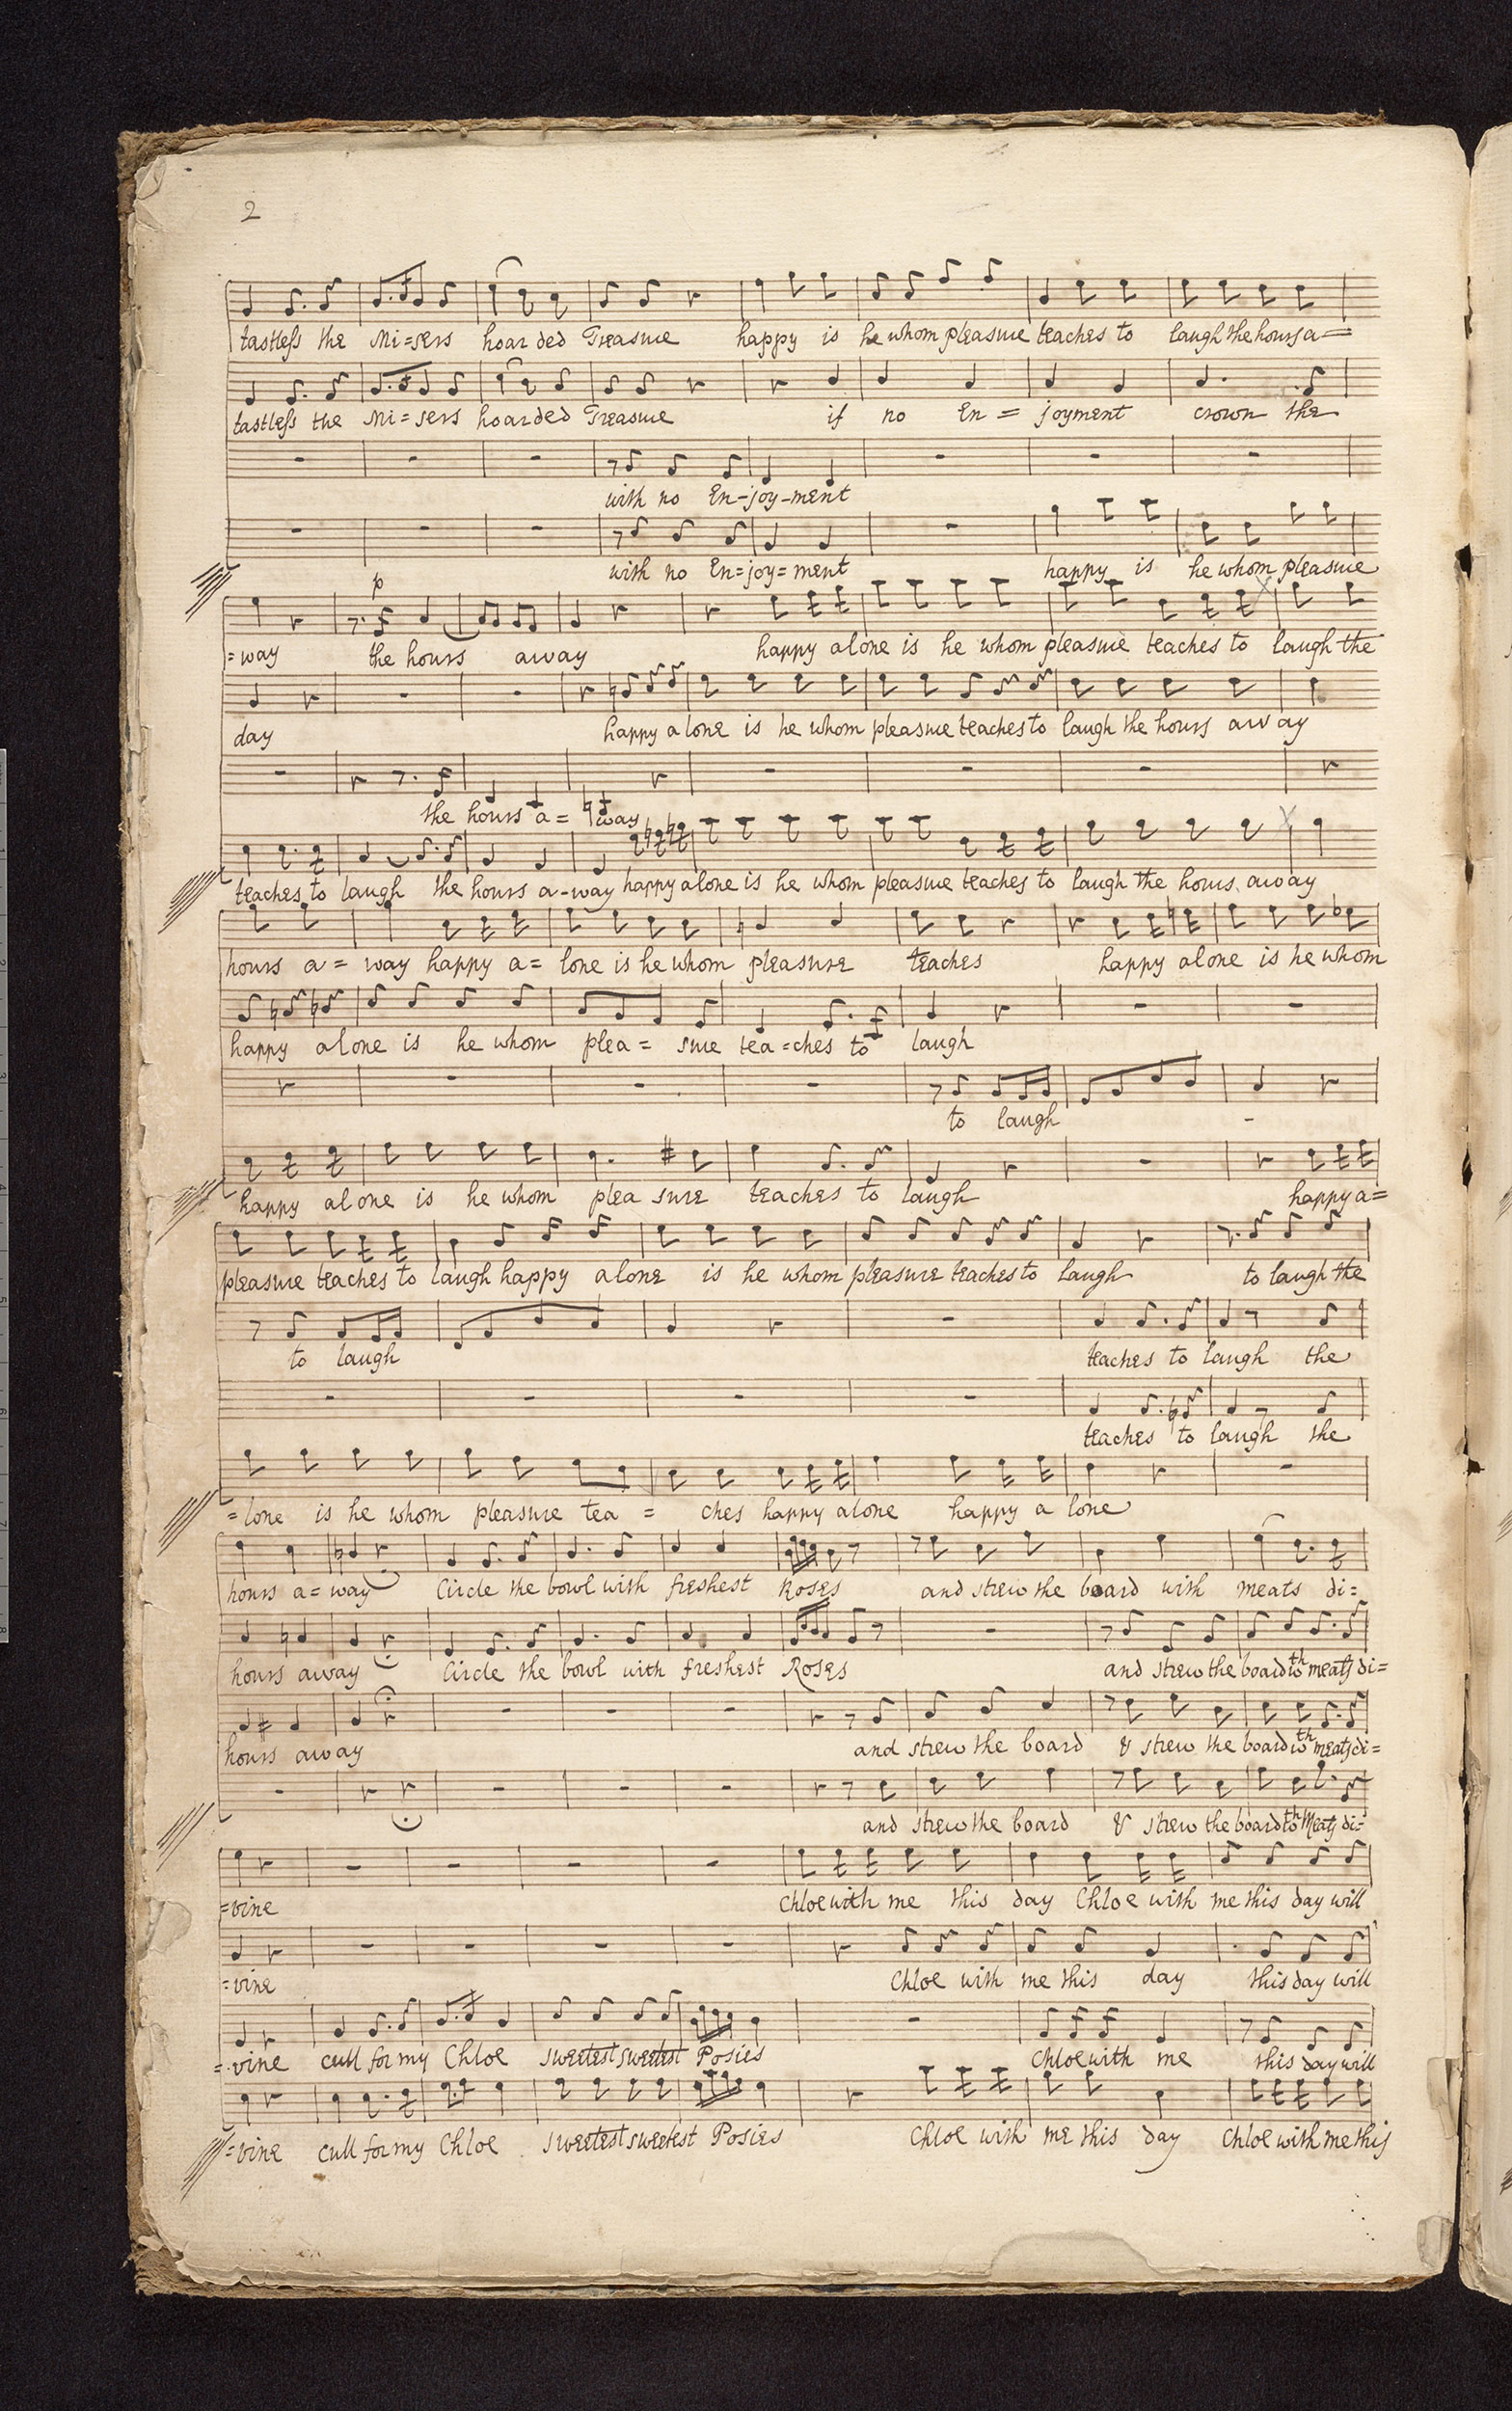 2
tastless the Mi=sers hoar ded Treasure happy is he whom pleasure teaches to laugh the hours a=
tastless the Mi=sers hoarded Treasure if no En= joyment crown the
with no En-joy-ment
with no En=joy=ment happy is he whom pleasure
p
=way the hours away happy alone is he whom pleasure teaches to laugh the
day happy alone is he whom pleasure teaches to laugh the hours away
the hours a= way
teaches to laugh the hours a-way happy alone is he whom pleasure teaches to laugh the hours away
hours a= way happy a= lone is he whom pleasure teaches happy alone is he whom
happy alone is he whom plea= sure tea=ches to laugh
to laugh -
happy alone is he whom plea sure teaches to laugh happy a=
pleasure teaches to laugh happy alone is he whom pleasure teaches to laugh to laugh the
to laugh teaches to laugh the
teaches to laugh the
=lone is he whom pleasure tea= ches happy alone happy a lone
hours a=way Circle the bowl with freshest Roses and strew the board with meats di=
hours away Circle the bowl with freshest Roses and strew the board wth meats di=
hours away and strew the board & strew the board wth meats di=
and strew the board & strew the board wth Meats di=
=vine Chloe with me this day Chloe with me this day will
=vine Chloe with me this day this day will
=vine cull for my Chloe sweetest sweetest Posies Chloe with me this day will
=vine cull for my Chloe sweetest sweetest Posies Chloe with me this day Chloe with me this